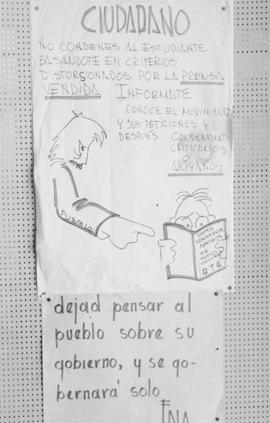 CIUDADANO
NO CONDENES AL ESTUDIANTE
BASANDOTE EN CRITERIOS
DISTORSIONADOS POR LA PRENSA
VENDIDA INFORMATE
CONOCE EL MOVIMIENTO
Y SUS PETICIONES Y
DESPUES CONDENANOS
CRITICANOS
APOYANOS
COMO
dejad pensar al
pueblo sobre su
gobierno, y se go-
bernará solo
ENA